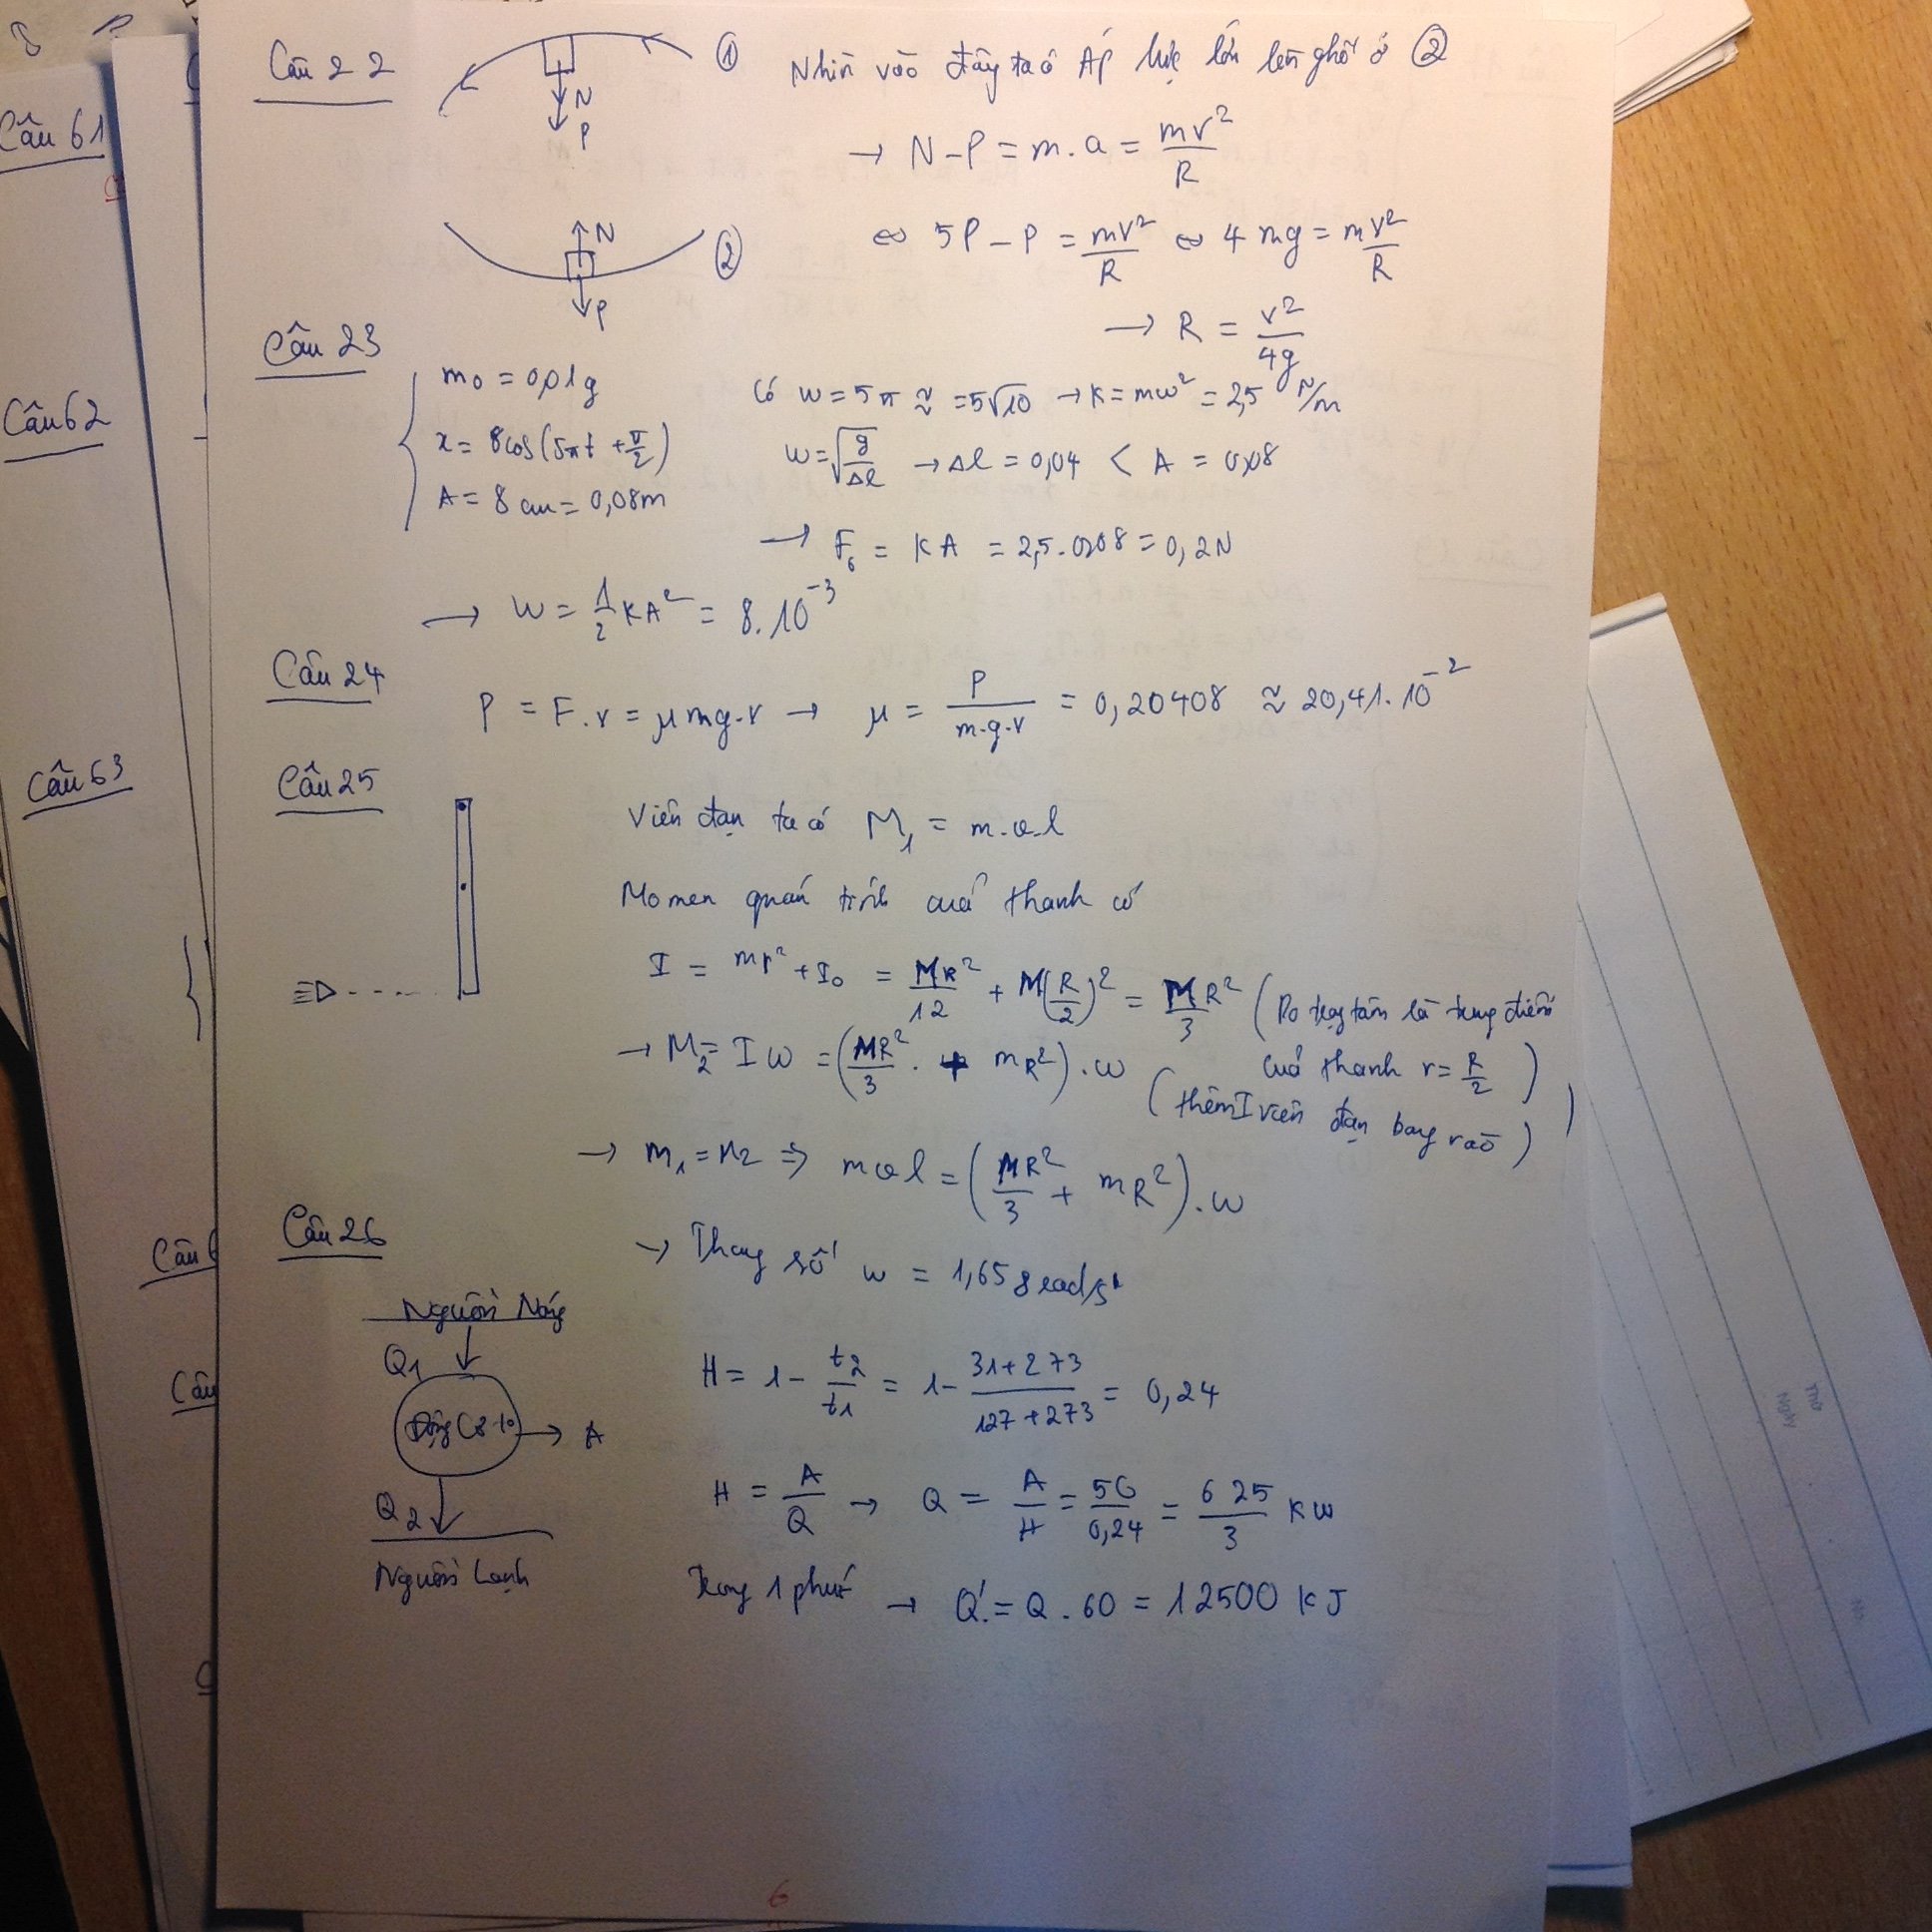 Câu 22
①
N
P
Nhìn vào đây ta có Áp lực lớn lên ghế ở ②
→ N - P = m.a = mv²/R
N
P
②
⇔ 5P - P = mv²/R ⇔ 4mg = mv²/R
→ R = v²/4g
Câu 23
m0 = 0,01g
x = 8cos(5πt + π/2)
A = 8cm = 0,08m
Có w = 5π ≈ = 5√10 → K = mω² = 2,5 N/m
w = √(g/Δl) → Δl = 0,04 < A = 0,08
→ F = KA = 2,5.0,08 = 0,2N
→ W = 1/2 KA² = 8.10⁻³
Câu 24
P = F.v = μmg.v → μ = P/m.g.v = 0,20408 ≈ 20,41.10⁻²
Câu 25
Viên đạn ta có M₁ = m.v.l
Momen quán tính của thanh có
I = mr² + I₀ = MR²/12 + M(R/2)² = MR²/3 (Do trọng tâm là trung điểm
của thanh r = R/2)
→ M₂ = Iω = (MR²/3 + mR²).ω
(thêm I viên đạn bay vào)
→ M₁ = M₂ ⇒ mvl = (MR²/3 + mR²).ω
→ Thay số w = 1,658 rad/s
Câu 26
Nguồn Nóng
Q1
→ A
Q2
Nguồn Lạnh
H = 1 - t2/t1 = 1 - 31+273/127+273 = 0,24
H = A/Q → Q = A/H = 50/0,24 = 625/3 KW
Trong 1 phút → Q' = Q.60 = 12500 KJ
6
Câu 61
Câu 62
Câu 63
Câu 6
Câu